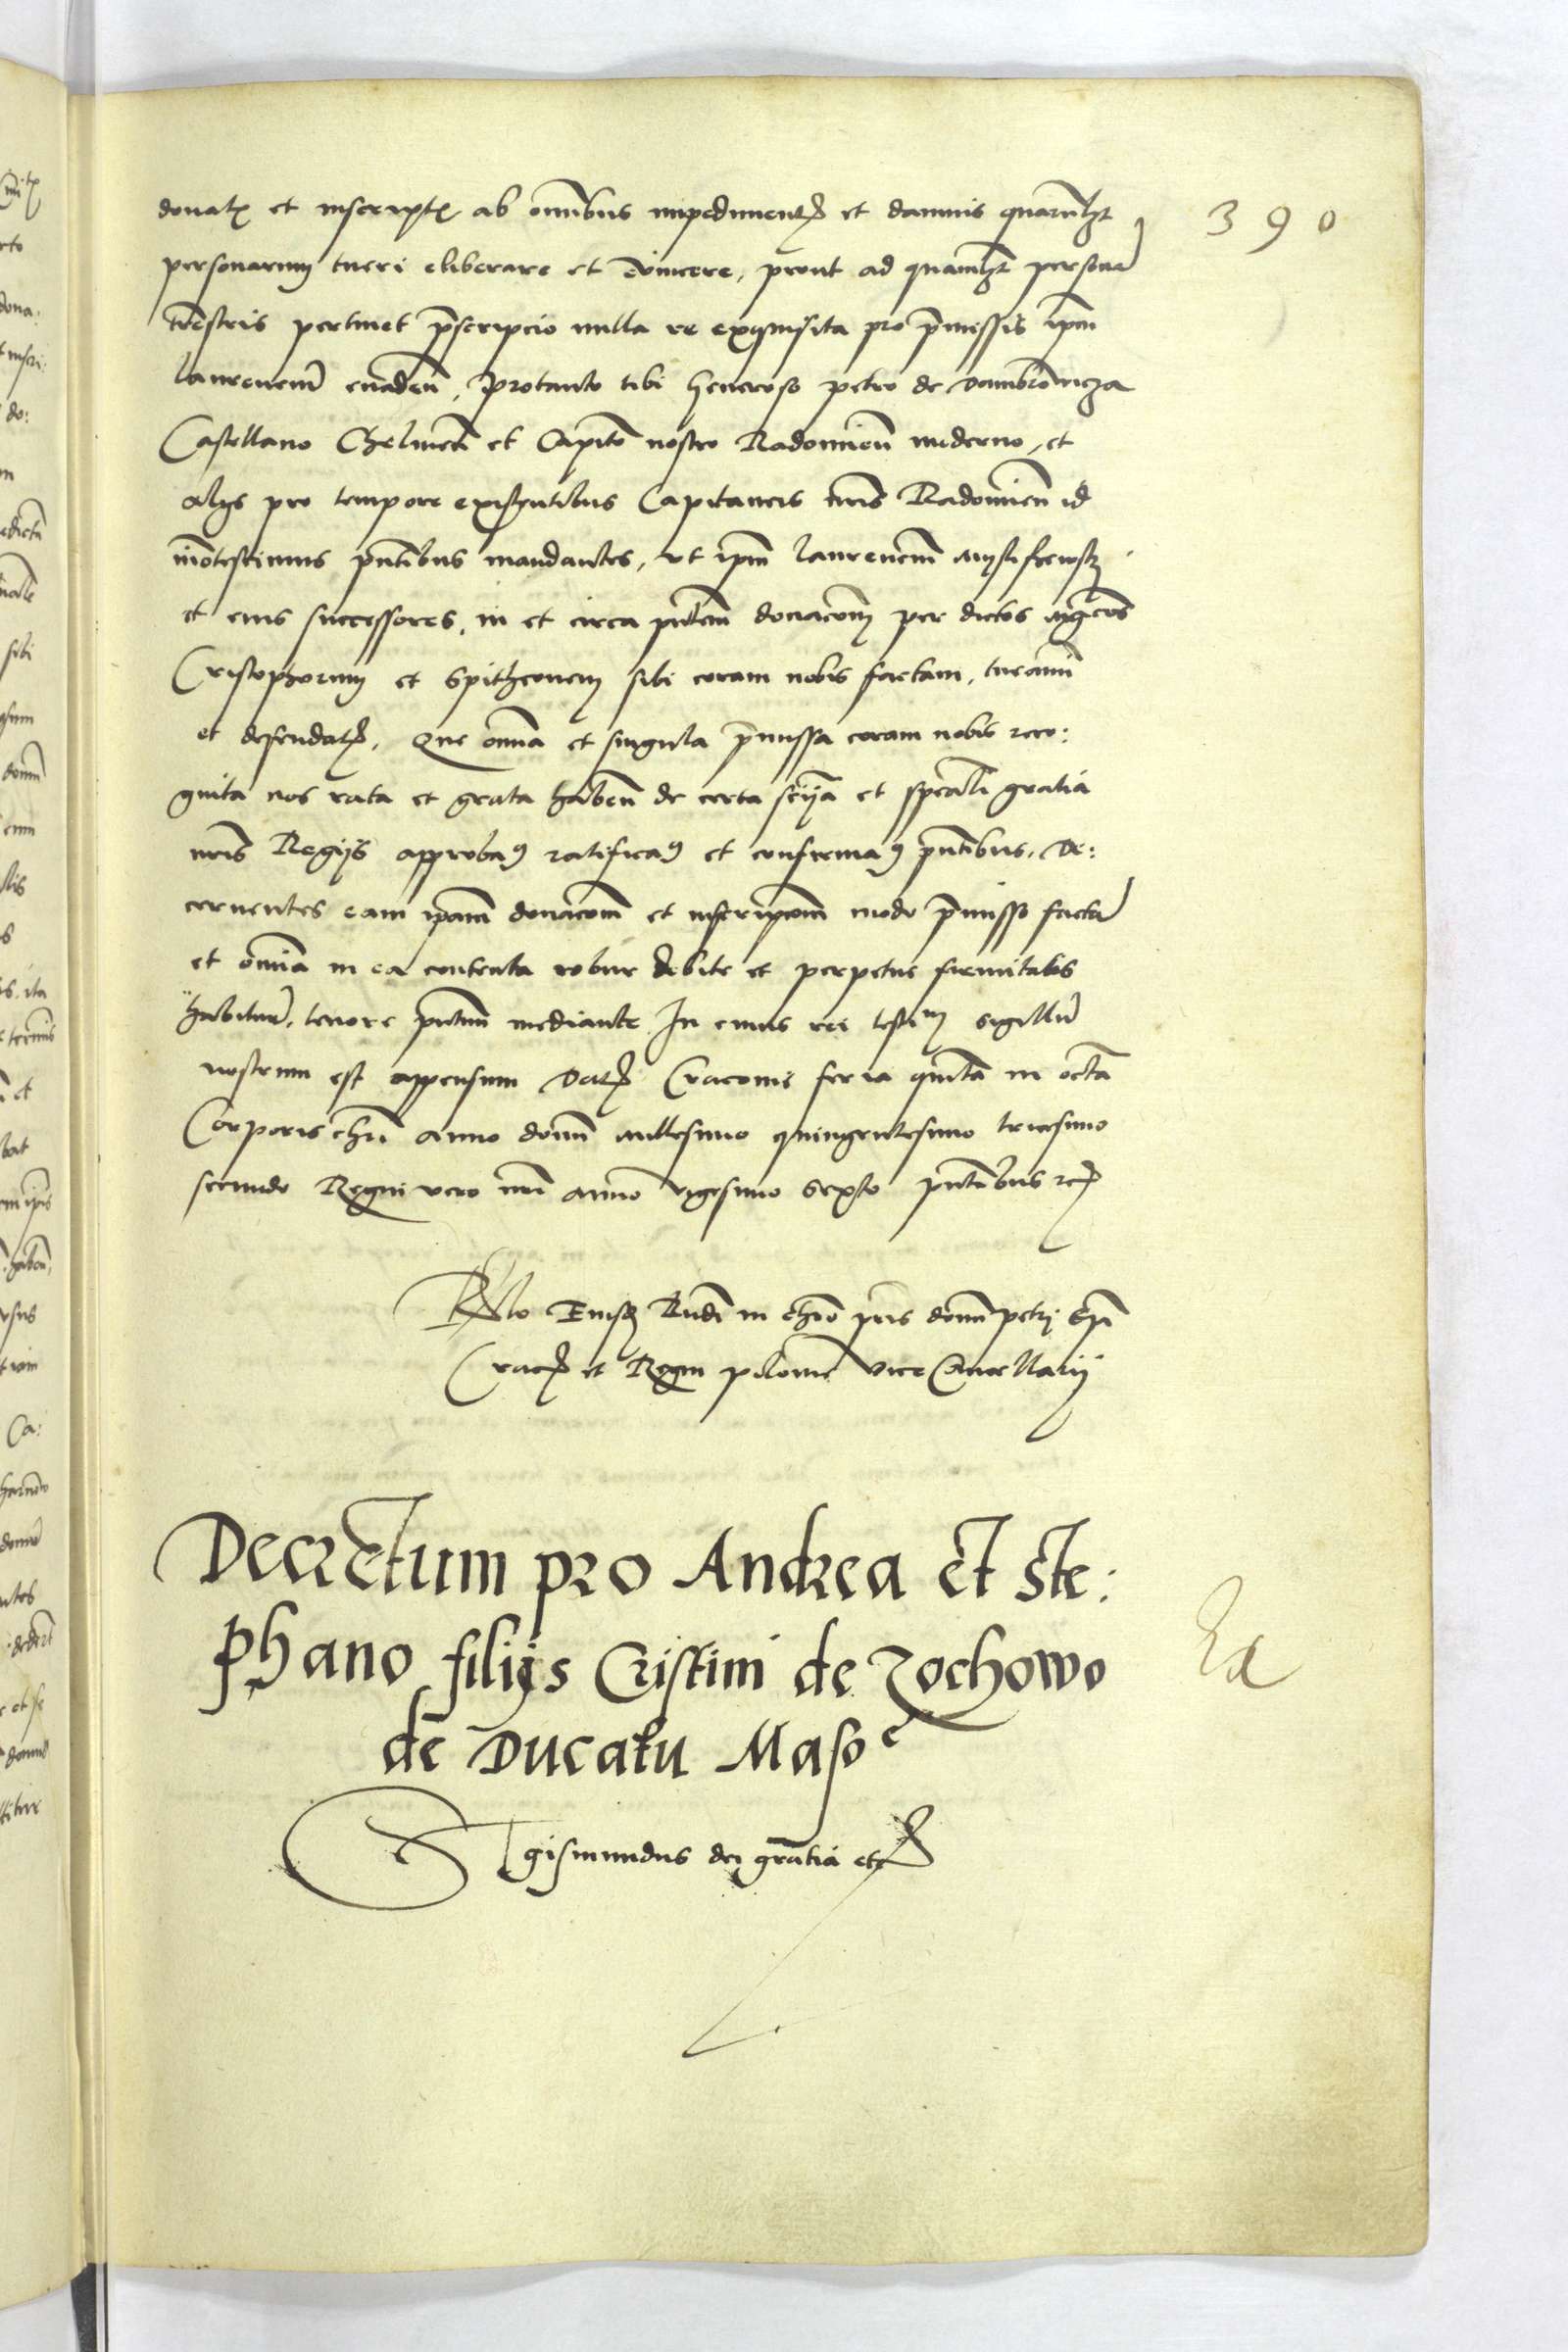 donatꝭ et inscriptꝭ ab omnibus impedimentꝭ et damnis quarūlzt
390
personarum tueri eliberare et euincere, prout ad quamlzt personā
trēstris pertinet p̄scripcio nulla re exquisita pro p̄missis ipm̄
laurencium euadeñ, Protanto tibi generoso petro de dambrowicza
Castellano Chelmeñ et Capitō nostro Radomieñ moderno, et
alijs pro tempore existentibus Capitaneis nr̄is Radomieñ id
īnotescimus pn̄tibus mandantes, vt ipm̄ laurencm̄
et eius successores, in et circa pn̄tem donacōnem per dictos
Cristophorum et Spithconem sibi coram nobis factam, tueamī
et defendatꝭ, Que om̄ia et singula p̄missa coram nobis reco:
gnita nos rata et grata habeñ de certa sciēn̄a et sp̄eali gratia
nr̄is Regijs approbam9 ratificam9 et confirmam9 pn̄tibus, De:
cernentes eam ipam̄ donacōm̄ et inscripcōm̄ modo p̄misso factā
et om̄ia in ea contenta robur debite et perpetue firmitatis
habiturā, tenore pn̄tium mediante In cuius rei testim̄ sigillū
nostrum est appensum Datꝭ Cracouie feria quīta in octā
Corporis chrī anno domī millesimo quingentesimo tricesimo
secundo Regni vero nr̄i anno vigesimo sexto pn̄tibus rcꝭ
Rlo Eiusdꝫ Rndī in chrō pr̄is domī petrj Epī
Cracꝭ et Regni polonie vice Cancellarij
Decretum pro Andrea et Ste:
phano filijs Cristini de Zochowo
de Ducatu Maso^e
Sigismundus dei gratia etcꝭ